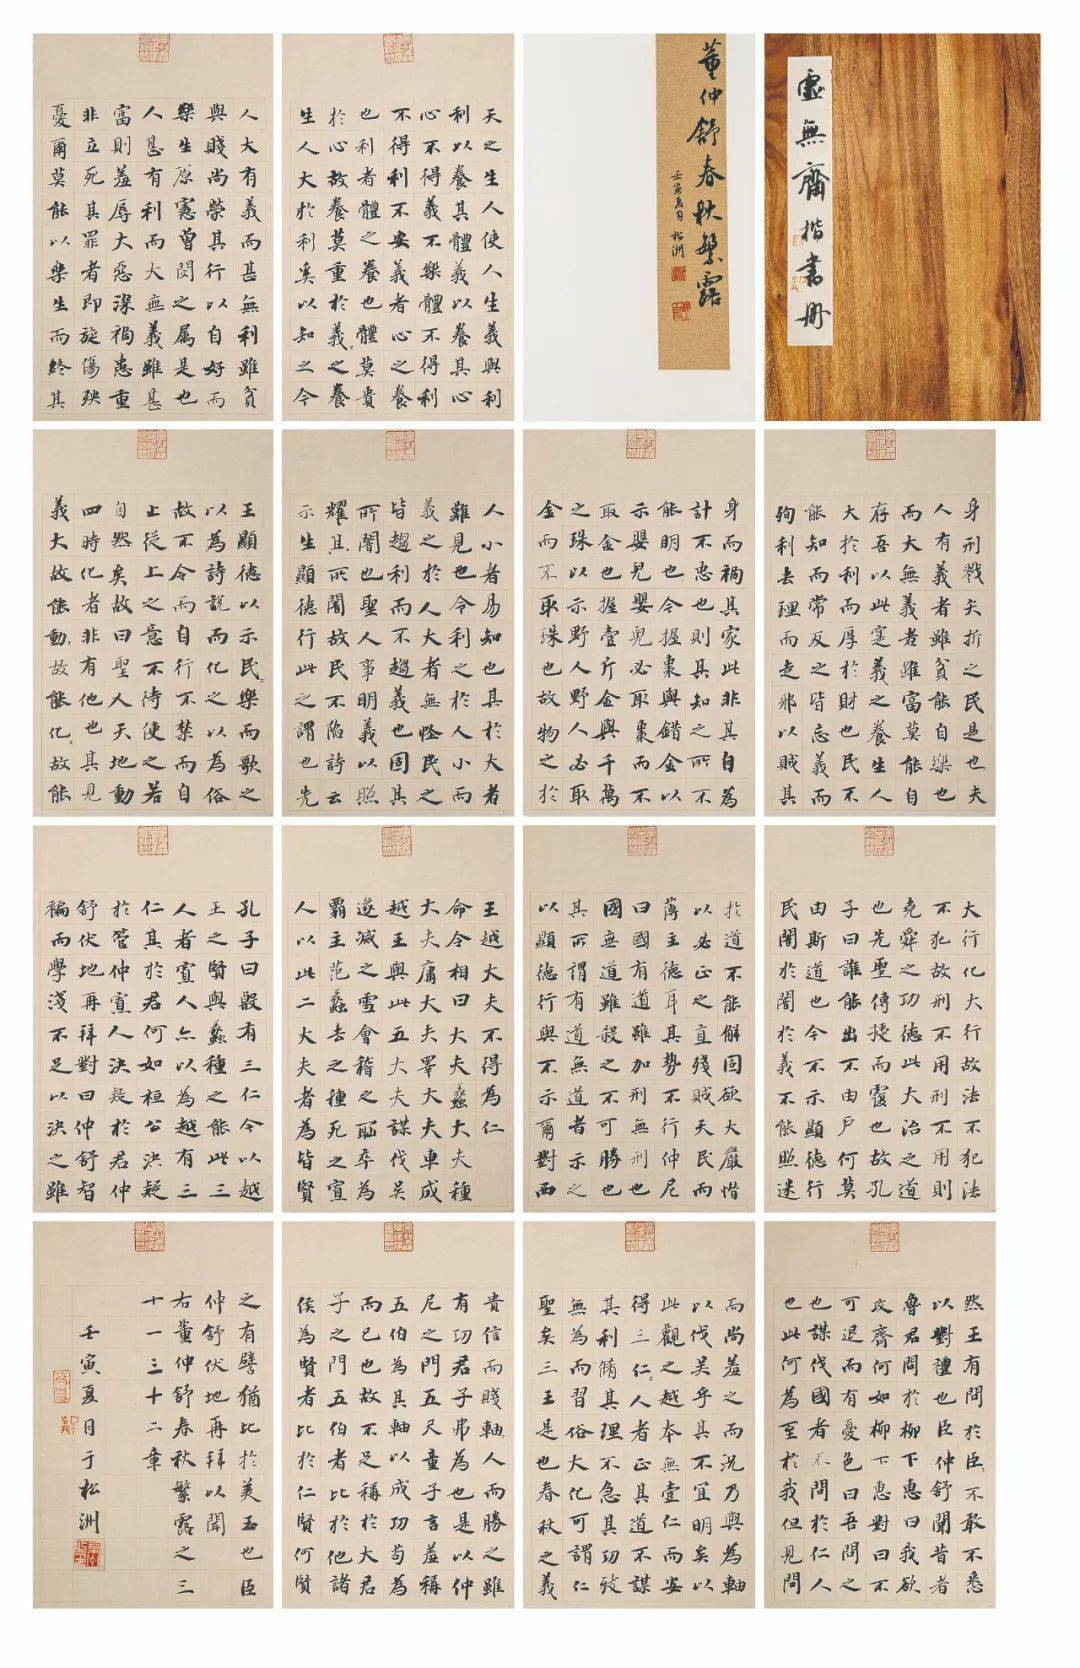 虛無齋楷書冊
董仲舒春秋繁露
壬寅夏月 松洲
天之生人使人生義與利
利以養其體義以養其心
心不得義不樂體不得利
不得利不安義者心之養
也利者體之養也體莫貴
於心故養莫重於義之養
生人大於利矣以知之今
人大有義而甚無利雖貧
與賤尚榮其行以自好而
樂生原憲曾閔之属是也
人甚有利而大無義雖甚
富則羞辱大惡深禍患重
非立死其罪者即旋傷殃
憂爾莫能以樂生而終其
身刑戮夭折之民是也夫
人有義者雖貧能自樂也
而大無義者雖富莫能自
存吾以此寔義之養生人
大於利而厚於財也民不
能知而常反之皆忘義而
殉利去理而走邪以賊其
身而禍其家此非其自為
計不忠也則其知之所不
能明也今握棗與錯金以
示嬰兒嬰兒必取棗而不
取金也握壹斤金與千萬
之珠以示野人野人必取
金而不取珠也故物之於
人小者易知也其於大者
雖見也今利之於人小而
義之於人大者無怪民之
皆趨利而不趨義也固其
所闇也聖人事明義以照
耀其所闇故民不陷詩云
示生顯德行此之謂也先
王顯德以示民樂而歌之
以為詩說而化之以為俗
故不令而自行不禁而自
止從上之意不待使之若
自然矣故曰聖人天地動
四時化者非有他也其見
義大故能動故能化故能
大行化大行故法不犯法
不犯故刑不用刑不用則
堯舜之功德此大治之道
也先聖傳授而覆也故孔
子曰誰能出不由戶何莫
由斯道也今不示顯德行
民闇於闇於義不能照迷
於道不能解固欲大嚴憯
以必正之直殘賊天民而
薄主德耳其勢不行仲尼
曰國有道雖加刑無刑也
國無道雖殺之不可勝也
其所謂有道無道者示之
以顯德行與不示爾對西
王越大夫不得為仁
命令相曰大夫蠡大夫種
大夫庸大夫睪大夫車成
越王與此五大夫謀伐吳
遂滅之雪會稽之恥卒為
霸主范蠡去之種死之寡
人以此二大夫者為皆賢
孔子曰殷有三仁今以越
王之賢與蠡種之能此三
人者寡人亦以為越有三
仁其於君何如桓公決疑
於管仲寡人決疑於君仲
舒伏地再拜對曰仲舒智
褊而學淺不足以決之雖
然王有問於臣不敢不悉
以對禮也臣仲舒聞昔者
魯君問於柳下惠曰我欲
攻齊何如柳下惠對曰不
可退而有憂色曰吾問之
也謀伐國者不問於仁人
也此何為至於我但見問
而尚羞之而況乃與為軸
以伐吳乎其不宜明矣以
此觀之越本無壹仁而安
得三仁人者正其道不謀
其利脩其理不急其功致
無為而習俗大化可謂仁
聖矣三王是也春秋之義
貴信而賤軸人而勝之雖
有功君子弗為也是以仲
尼之門五尺童子言羞稱
五伯為其軸以成功苟為
而已也故不足稱於大君
子之門五伯者比於他諸
侯為賢者比於仁賢何賢
之有譬猶比於美玉也臣
仲舒伏地再拜以聞
右董仲舒春秋繁露之三
十一三十二章
壬寅夏月于松洲